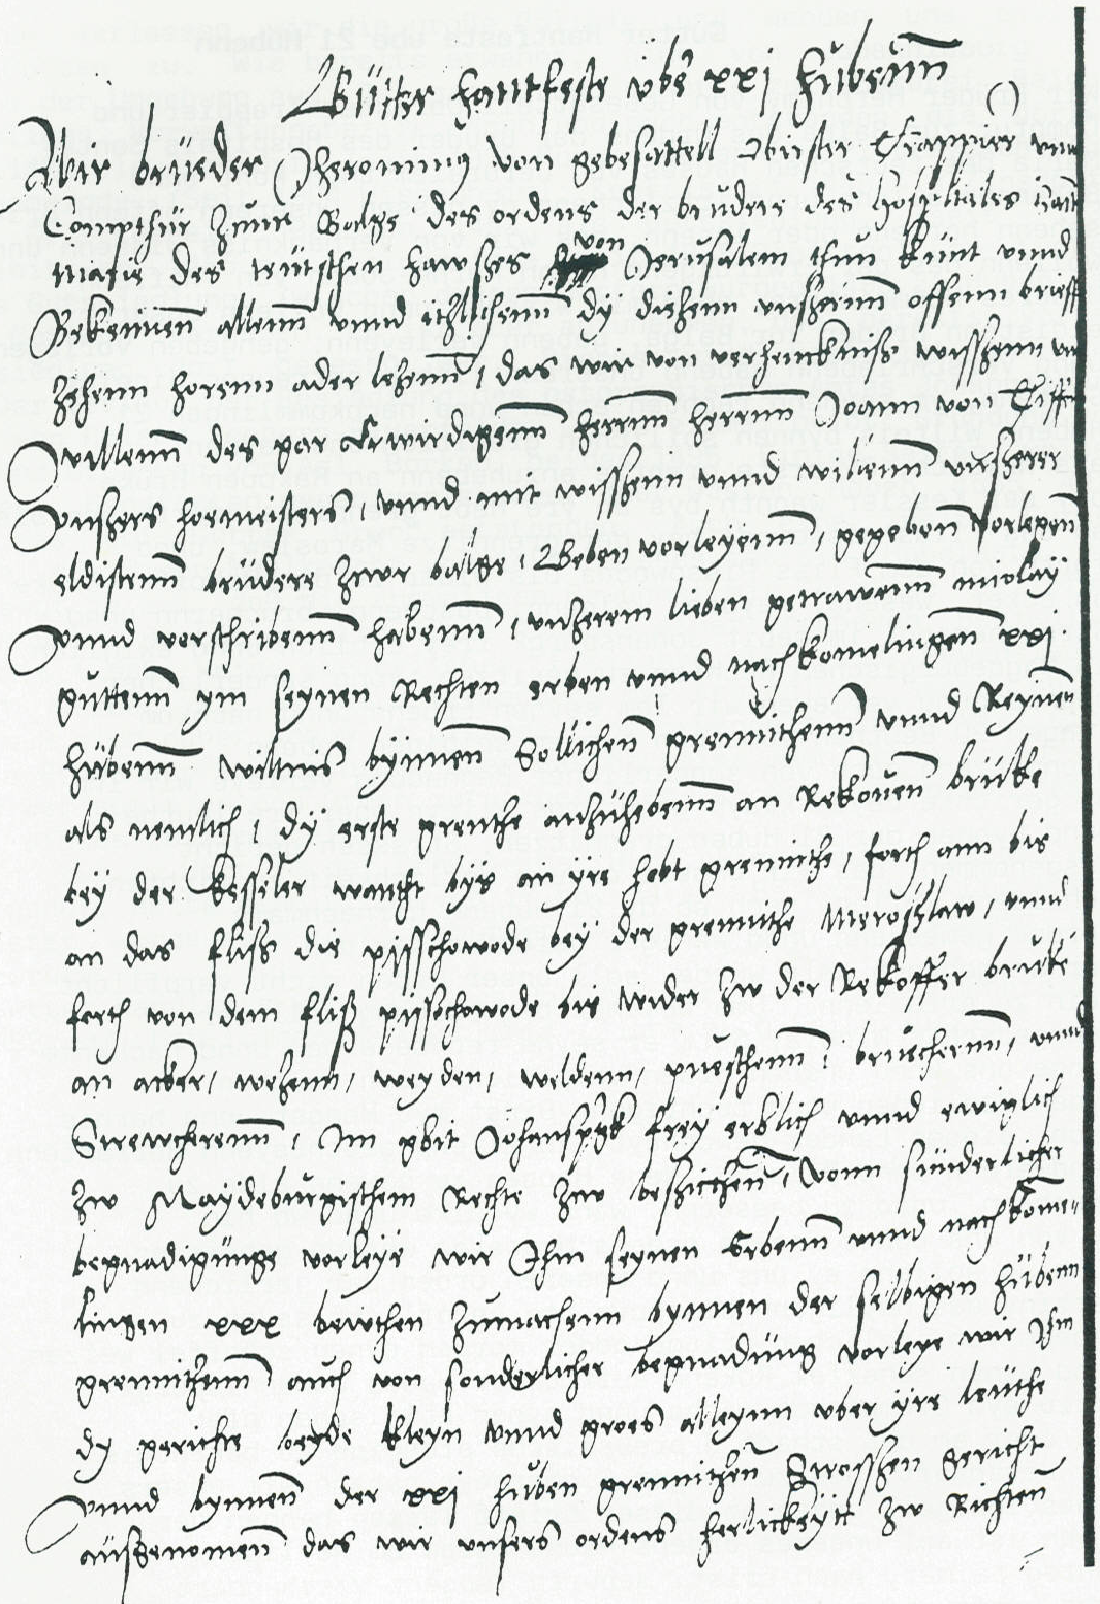 Gutter hantfeste vbe xxi hubenn
Wir brueder Jheronimus von gebesattell Obirster Trappier vnnd
Compthur zunr Balge des ordens der brudere des Hospitales sant
marie des teutschen hawszes von Jerusalem thun kunt vnnd
Bekennen allenn vnnd itzlichenn dy diszenn vnszeinn offenn brieff
zehenn horenn ader lezenn, das wir von verhencknisz wisszenn vnd
willenn des gar Erwirdigenn herrnn herrnn Joann von Tiffen
vnszers homeisters, vnnd mit wisszenn vnnd willenn vnszerer
eldistenn brudere zwr balge, Geben vorleyenn, gegeben vorlegen
vnnd vorschribenn habenn, vnszerem lieben getrawenn nicklay
guttenn ym seynen Rechten erben vnnd nachkomelingen xxj
hubenn wiltnis bynnen Sollichen grennitzenn vnnd Reynen
als nemlich, dy erste grentze anzuhebenn an Rekowen brucke
bey der Kesseler wancht bys an yre hobt grennitze, forth ann bis
an das flisz die pisschowode bey der grennitze Meroszlaw, vnnd
forth von dem flisz pisschowode bis wider zw der Rekoffer brucke
an acker, weszenn, weyden, weldenn, puschenn, bruschernn, vnnd
Strewcherenn, Im gbit Johanspurgk frey erblich vnnd ewiglich
zw Maydeburgischem Rechte zw beszitzen, Vonn sunderlicher
begnadigunge vorleye wir Ihm seynen Erbenn vnnd nachkome-
lingen xxx bewthen zumachenn bynnen der selbigen hubenn
grennitzenn auch von sonderlicher begnadung vorleye wir Ihm
dy gerichte beyde kleyn vnnd groes alleynn vber yre leuthe
vnnd bynnen der xxj huben grennitzen Strosszen gericht
auszgenomen das wir vnsers ordens herlickeytt zw Richten